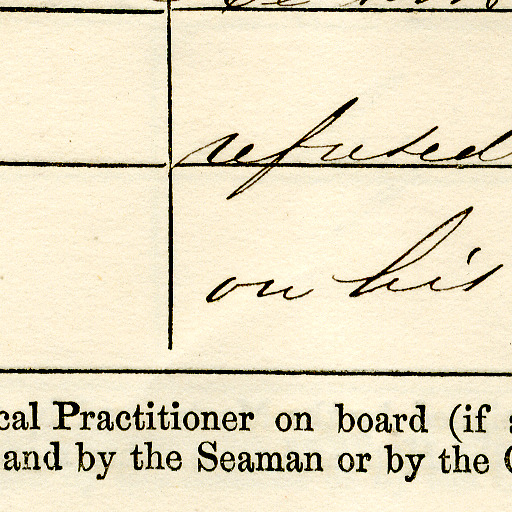 refused
on his
cal Practitioner on board (if
and by the Seaman or by the